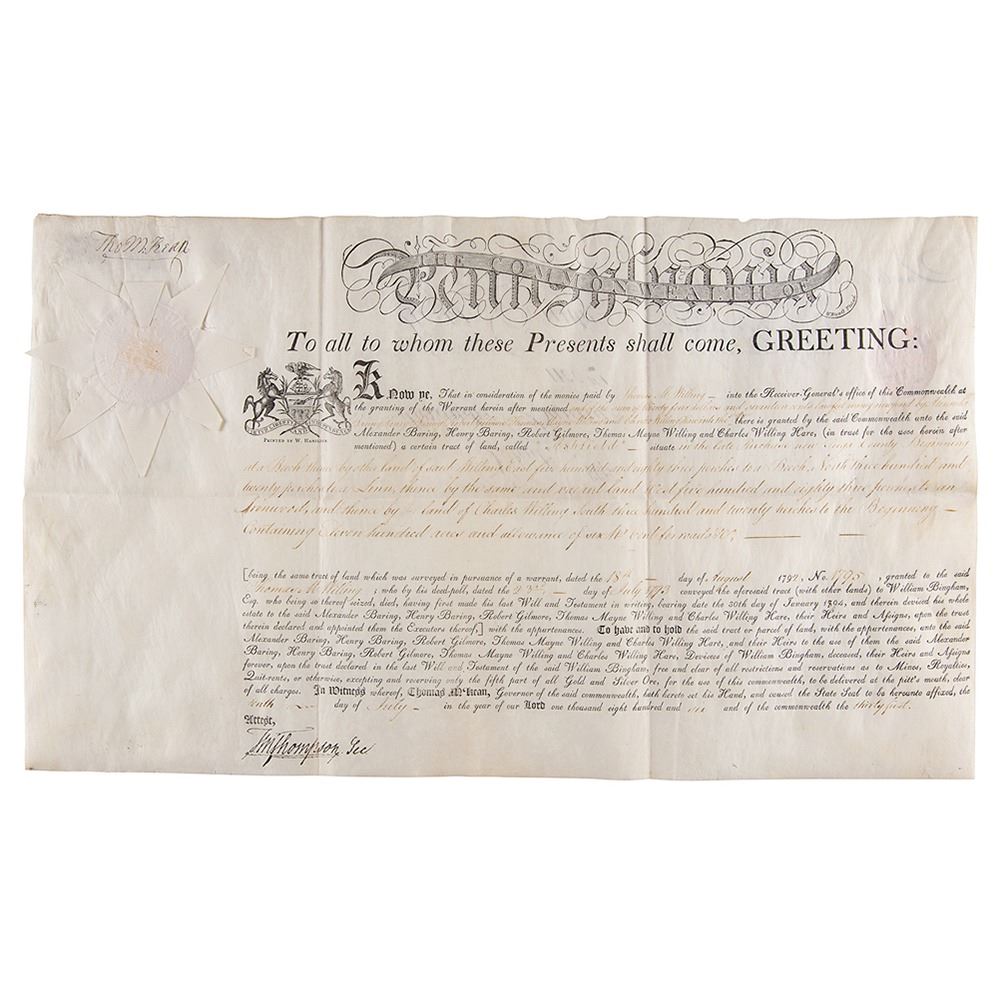 Tho M:Kean
THE COMMONWEALTH OF
Pennsylvania
To all to whom these Presents shall come, GREETING:
Know ye, That in consideration of the monies paid by Thomas M. Willing — into the Receiver-General's office of this Commonwealth at
the granting of the Warrant herein after mentioned
there is granted by the said Commonwealth unto the said
Alexander Baring, Henry Baring, Robert Gilmore, Thomas Mayne Willing and Charles Willing Hare, (in trust for the uses herein after
mentioned) a certain tract of land, called — situate in the late Purchase now County Beginning
at a Beech thence by other land of said Willing East five hundred and eighty three perches to a Beech, North three hundred and
twenty perches to a Linn, thence by the same and vacant land West five hundred and eighty three perches to an
Ironwood, and thence by land of Charles Willing South three hundred and twenty perches to the Beginning —
Containing Eleven hundred acres and allowance of six ⅌ Cent for roads &c. —
PRINTED BY W. HAMILTON
[being the same tract of land which was surveyed in pursuance of a warrant, dated the 18th — day of August 1792, No. 1795, granted to the said
Thomas M. Willing; who by his deed-poll, dated the 23rd — day of July 1793 conveyed the aforesaid tract (with other lands) to William Bingham,
Esq. who being so thereof seized, died, having first made his last Will and Testament in writing, bearing date the 30th day of January 1804, and therein devised his whole
estate to the said Alexander Baring, Henry Baring, Robert Gilmore, Thomas Mayne Willing and Charles Willing Hare, their Heirs and Assigns, upon the trust
therein declared and appointed them the Executors thereof,] with the appurtenances. To have and to hold the said tract or parcel of land, with the appurtenances, unto the said
Alexander Baring, Henry Baring, Robert Gilmore, Thomas Mayne Willing and Charles Willing Hare, and their Heirs to the use of them the said Alexander
Baring, Henry Baring, Robert Gilmore, Thomas Mayne Willing and Charles Willing Hare, Devisees of William Bingham, deceased, their Heirs and Assigns
forever, upon the trust declared in the last Will and Testament of the said William Bingham, free and clear of all restrictions and reservations as to Mines, Royalties,
Quit-rents, or otherwise, excepting and reserving only the fifth part of all Gold and Silver Ore, for the use of this commonwealth, to be delivered at the pitt's mouth, clear
of all charges. In Witness whereof, Thomas M'Kean, Governor of the said commonwealth, hath hereto set his Hand, and caused the State Seal to be hereunto affixed, the
tenth — day of July — in the year of our Lord one thousand eight hundred and six and of the commonwealth the thirty first.
Attest,
TMThompson Sec